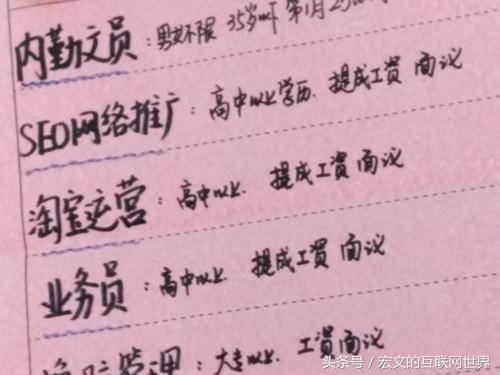 内勤文员：男女不限 35岁以下 第1月25
SEO网络推广：高中以上学历、提成工资 面议
淘宝运营：高中以上、提成工资 面议
业务员：高中以上 提成工资 面议
管理：大专以上、工资面议
头条号／宏文的互联网世界